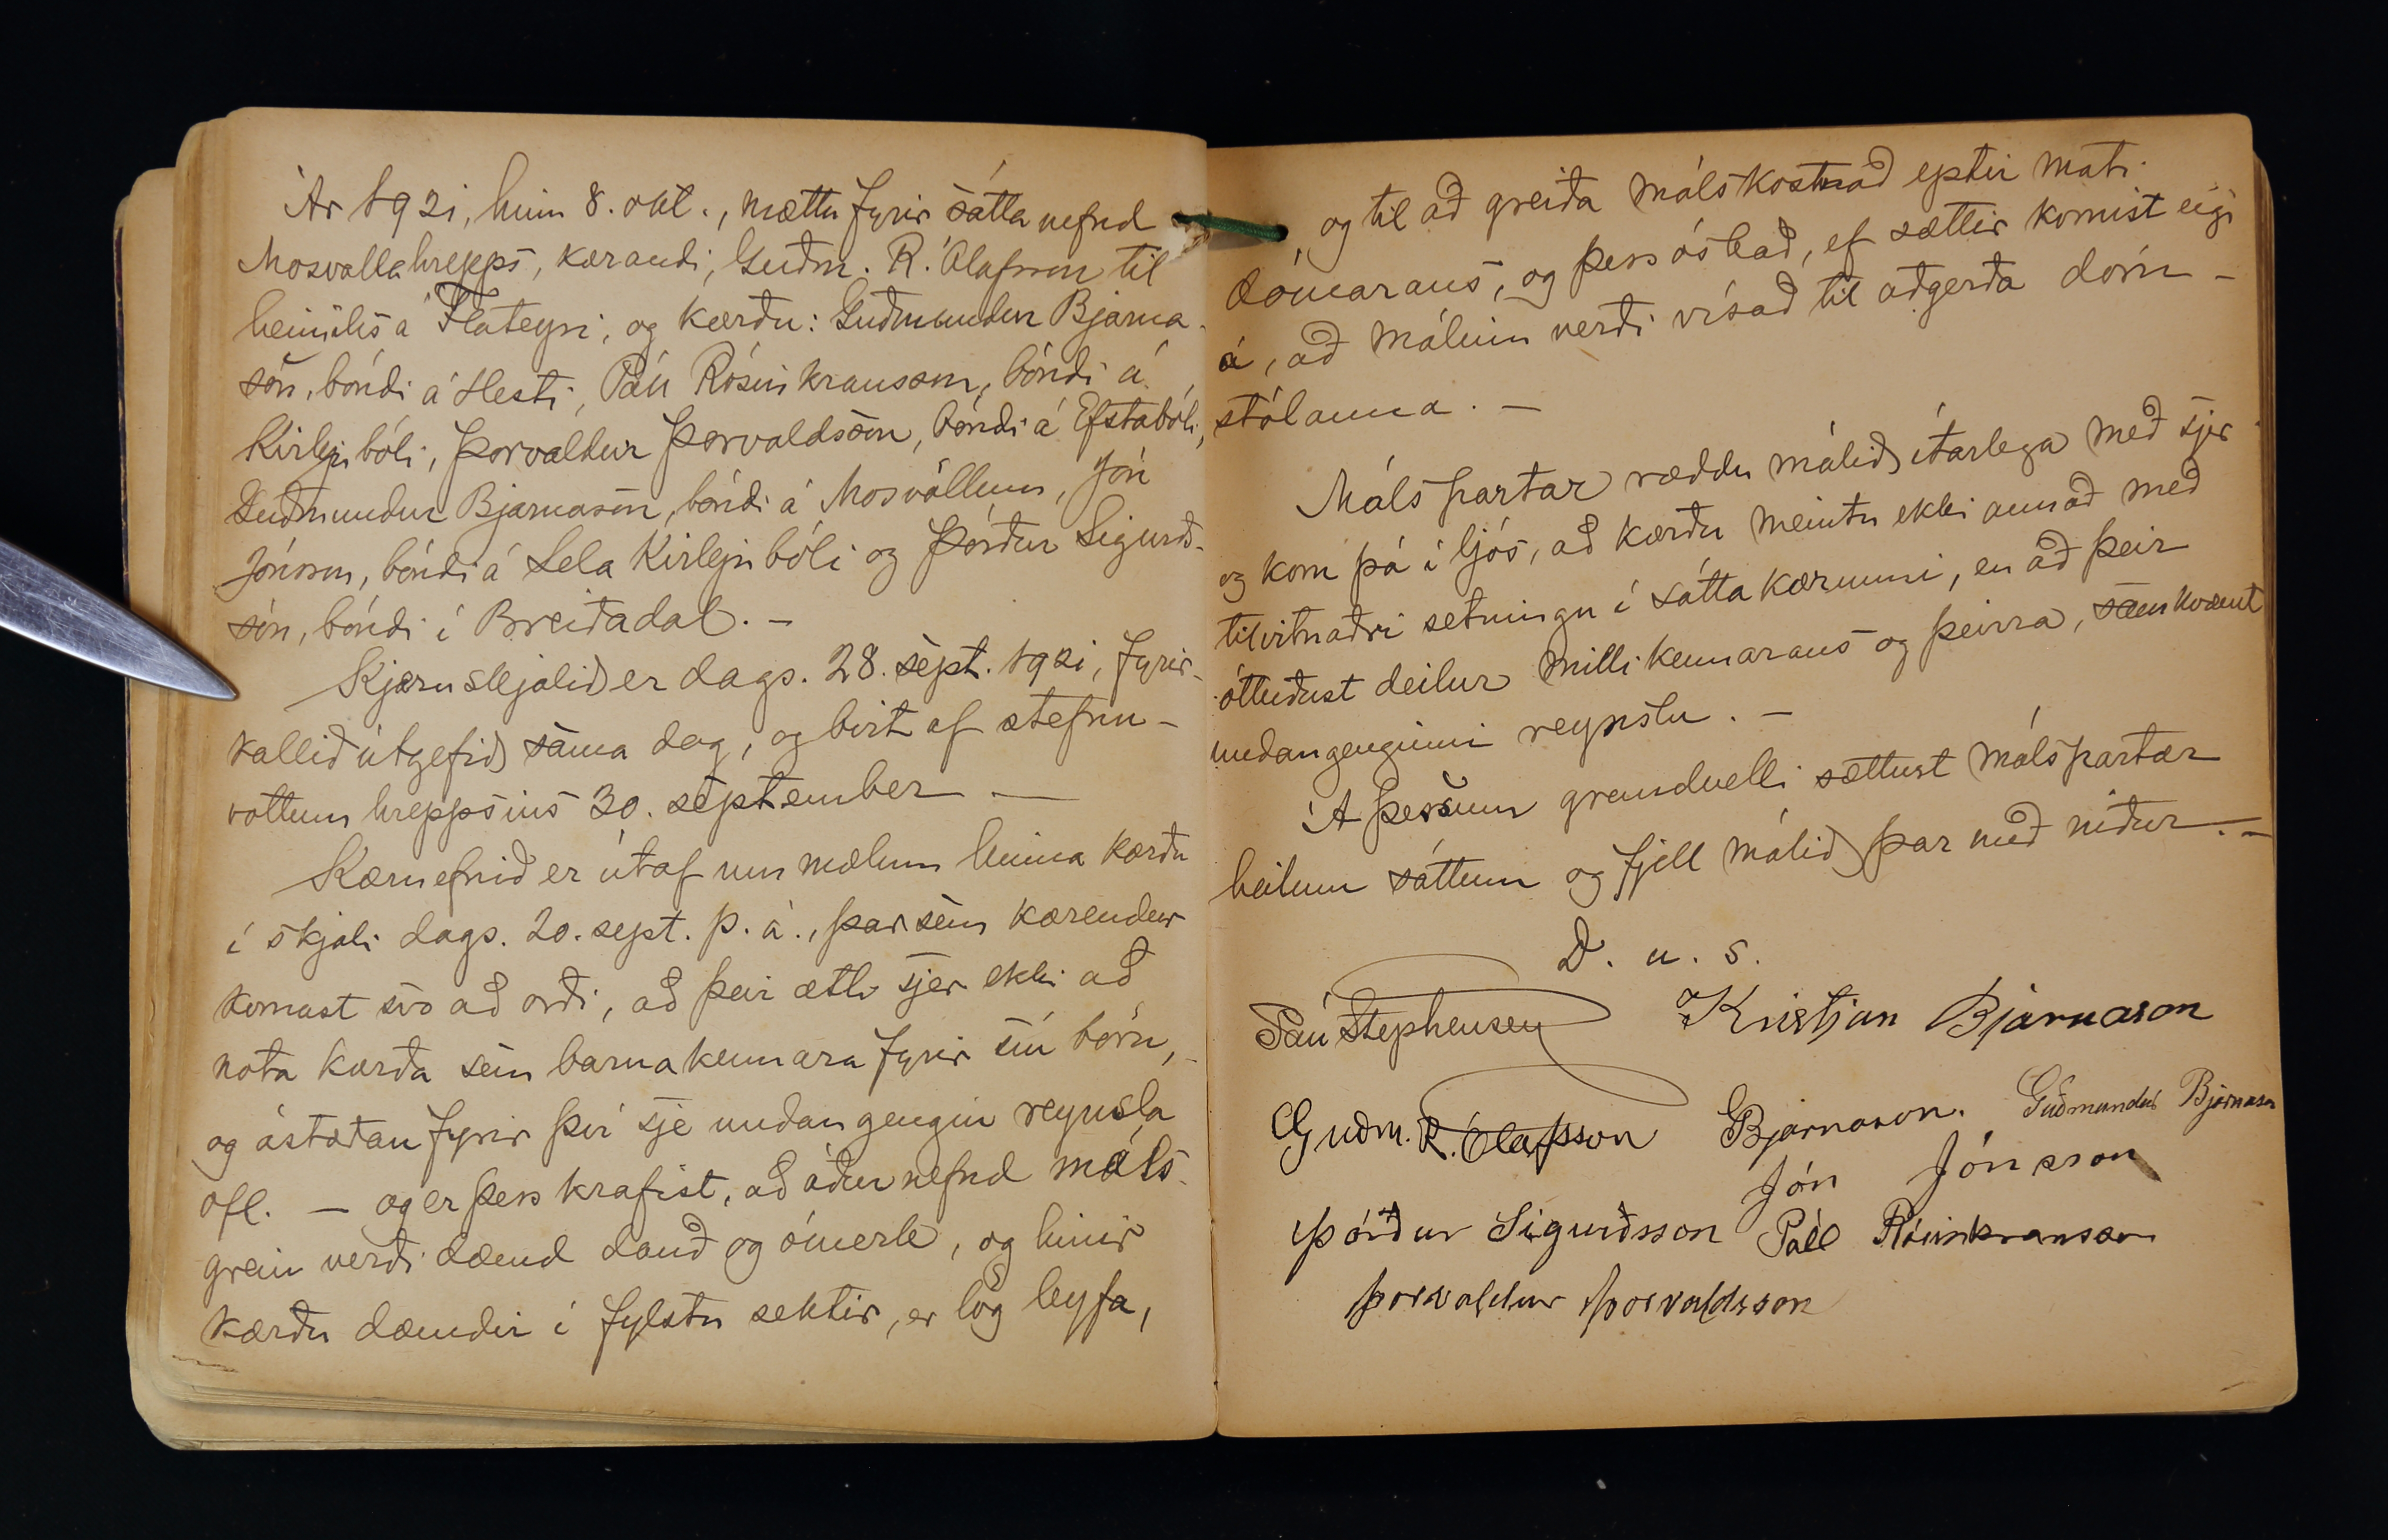 Ár 1921, hinn 8. okt., mættu fyrir sáttanefnd
Mosvallahrepps, kærandi, Guðm. R. Ólafsson til
heimilis á Flateyri, og kærðu: Guðmundur Bjarna-
són, bóndi á Hesti, Páll Rósinkransson, bóndi á
Kirkjubóli, Þorvaldur Þorvaldsson, bóndi á Efstabóli,
Guðmundur Bjarnason, bóndi á Mosvöllum, Jón
Jónsson, bóndi á Sela Kirkjubóli og Þórður Sigurðs-
són, bóndi í Breiðadal. –
Kjæruskjalið er dags. 28. sept. 1921, fyrir-
kallið útgefið sama dag, og birt af stefnu-
vottum hreppsins 30. september —
Kæruefnið er útaf ummælum hinna kærðu
í skjali dags. 20. sept. þ. á., þar sem kærendur
komast svo að orði, að þeir ætli sjer ekki að
nota kærða sem barnakennara fyrir sín börn, –
og ástæðan fyrir því sje undangengin reynsla
ofl. — og er þess krafist, að áðurnefnd máls-
grein verði dæmd dauð og ómerk, og hinir
kærðu dæmdir í fylstu sektir, er lög leyfa,
, og til að greiða málskostnað eptir mati
dómarans, og þess óskað, ef sættir komist eigi
á, að málinu verði vísað til aðgerða dóm-
stólanna. —
Málspartar ræddu málið ítarlega með sjer
og kom þá í ljós, að kærðu meintu ekki annað með
tilvitnaðri setningu í sáttakærunni, en að þeir
óttuðust deilur milli kennarans og þeirra, samkvæmt
undangenginni reynslu. —
Á þessum grundvelli sættust málspartar
heilum sáttum og fjell málið þar með niður. —
D. u. s.
Páll Stephensen Kristján Bjarnason
Guðm. R. Ólafsson GBjarnason. Guðmundur Bjarnason
Jón Jónsson
Þórður Sigurðsson Páll Rósinkransson
Þorvaldur Þorvaldsson